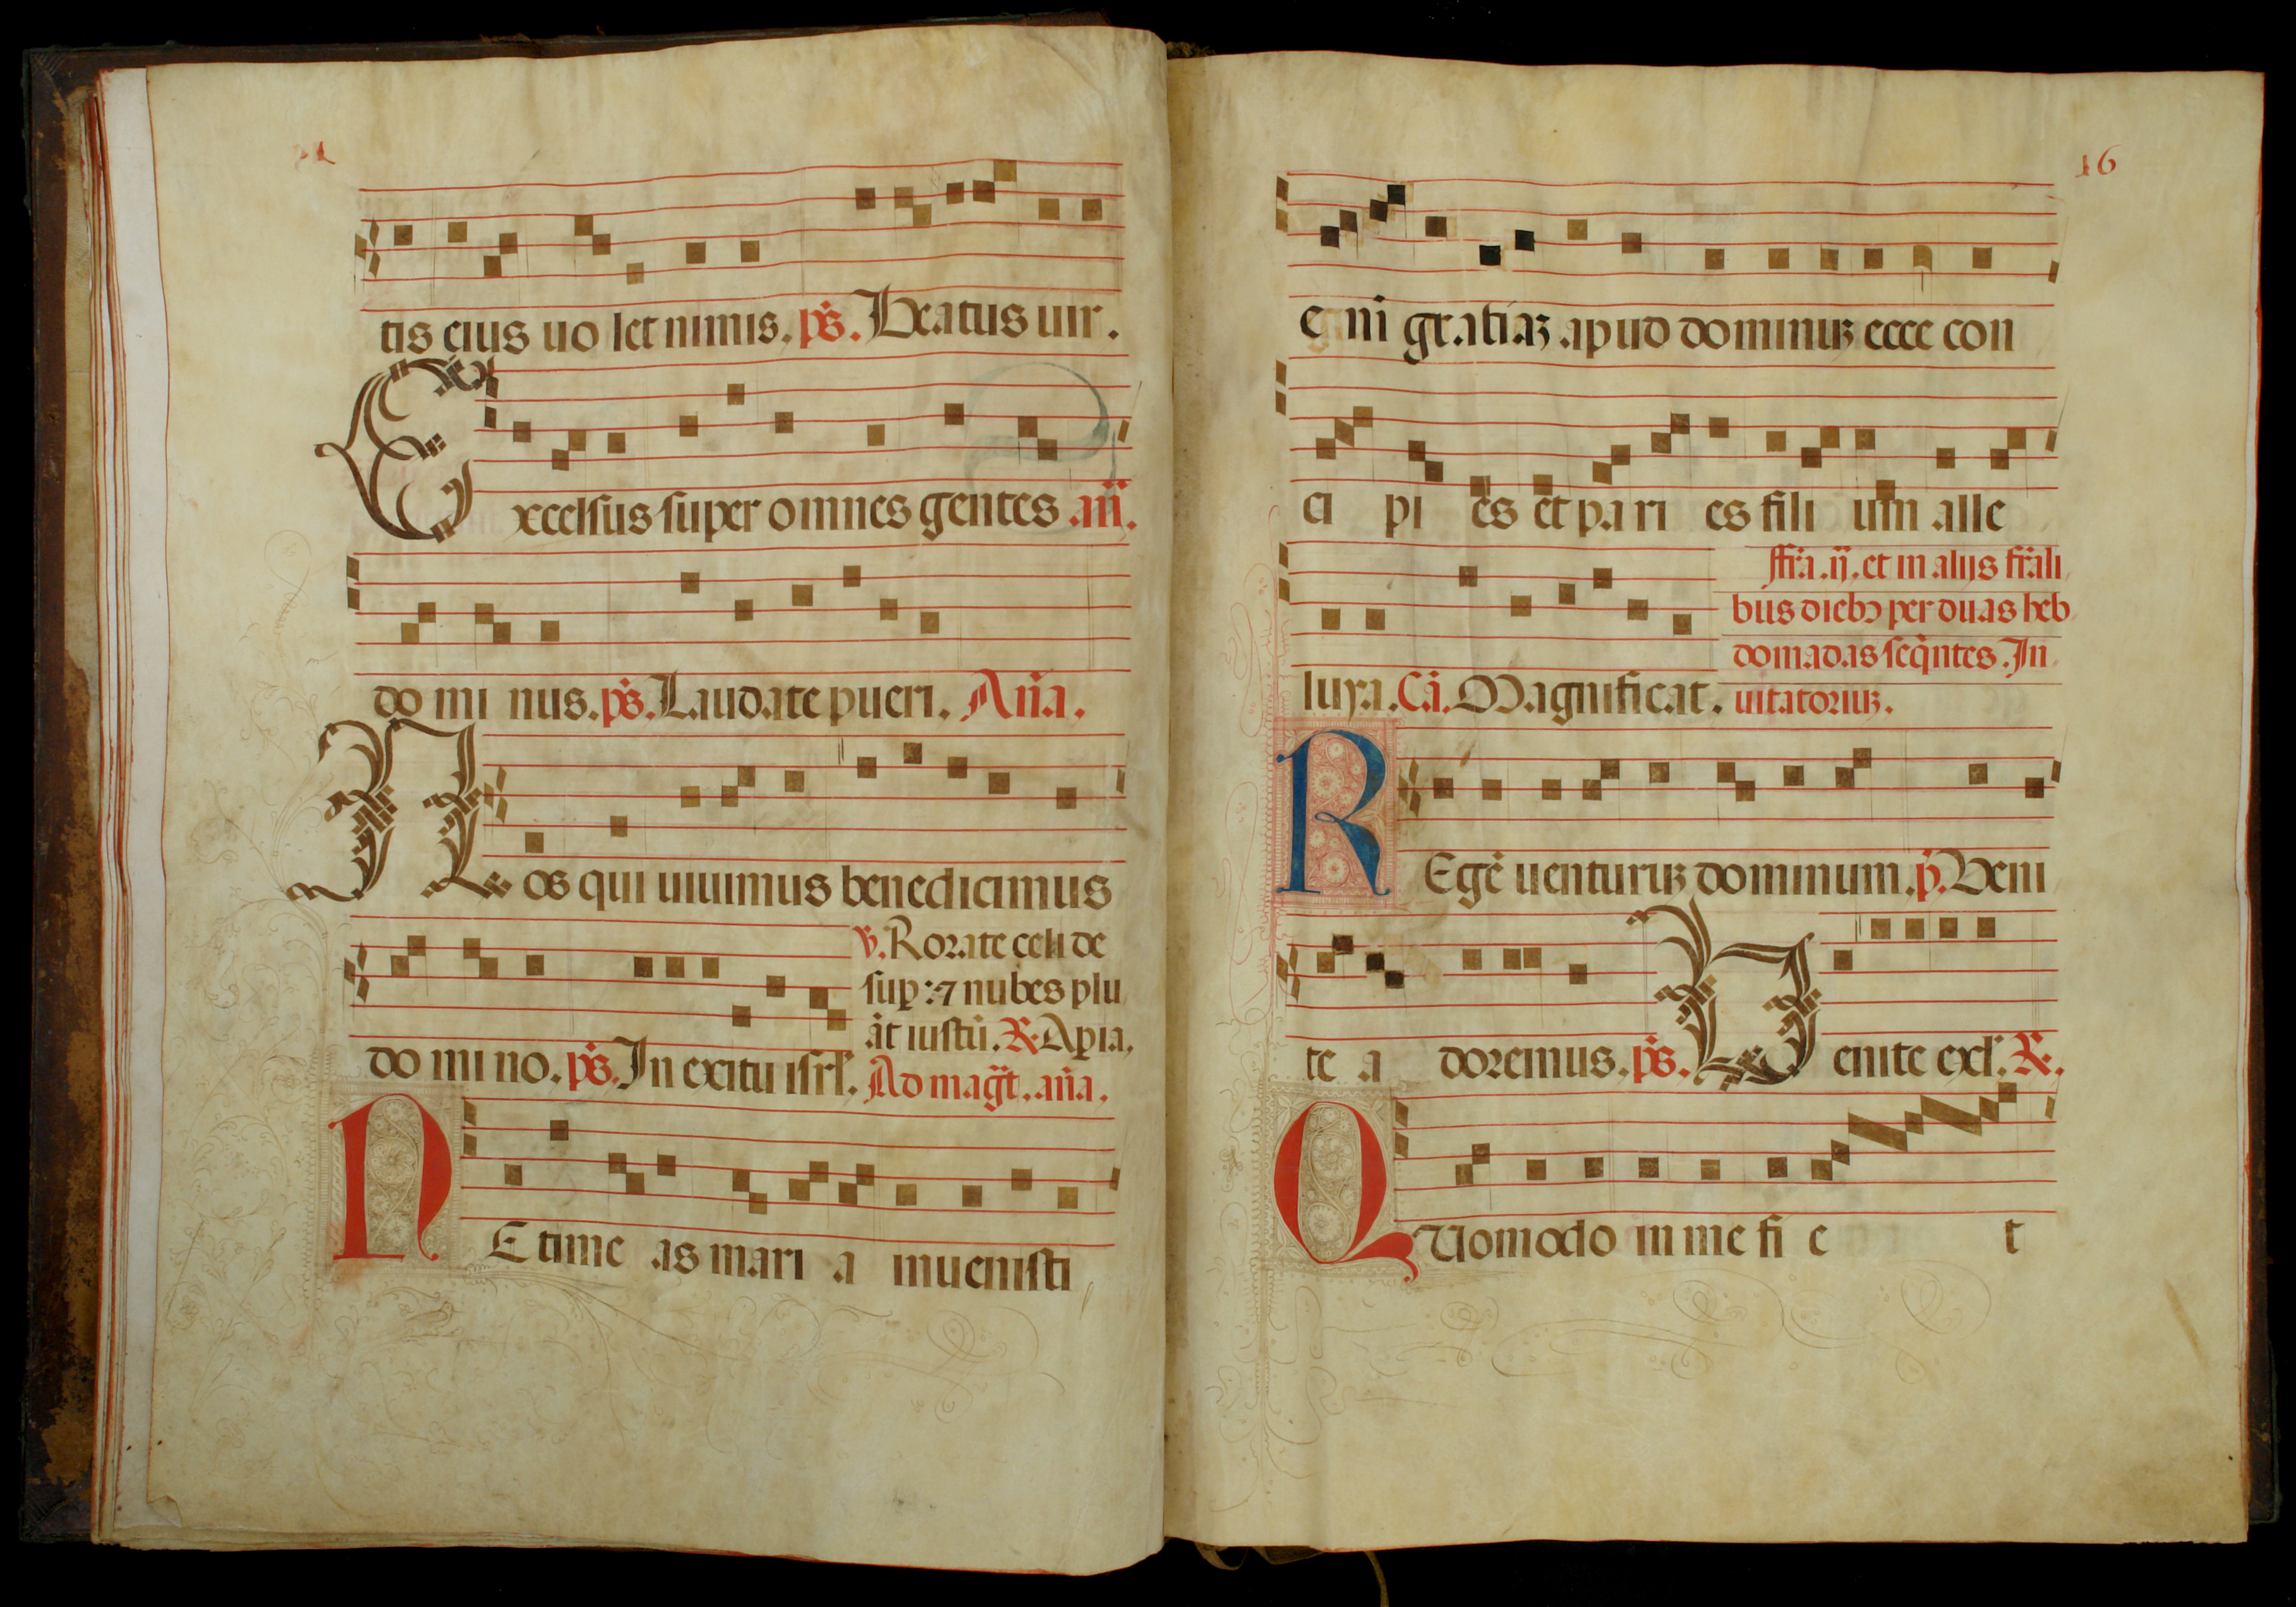 tis eius uo let nimis. ps. Beatus uir.
Excelsus super omnes gentes an.
do mi nus. ps. Laudate pueri. Ana.
Nos qui uiuimus benedicimus
v. Rorate celi de
sup: ⁊ nubes plu
āt iustū. R. Apia.
do mi no. ps. In exitu isrl. Ad magt. ana.
NE time as mari a inuenisti
16
e ni gratiaꝫ apud dominuꝫ ecce con
ci pi es et pa ri es fili um alle
ffra. ij. et in alijs frali
bus diebꝰ per duas heb
domadas seqntes. In
luya. Ca. Magnificat. uitatoriuꝫ.
REgē uenturuꝫ dominum. p. Veni
te a doremus. ps. Venite exl. R.
QUomodo in me fi e t